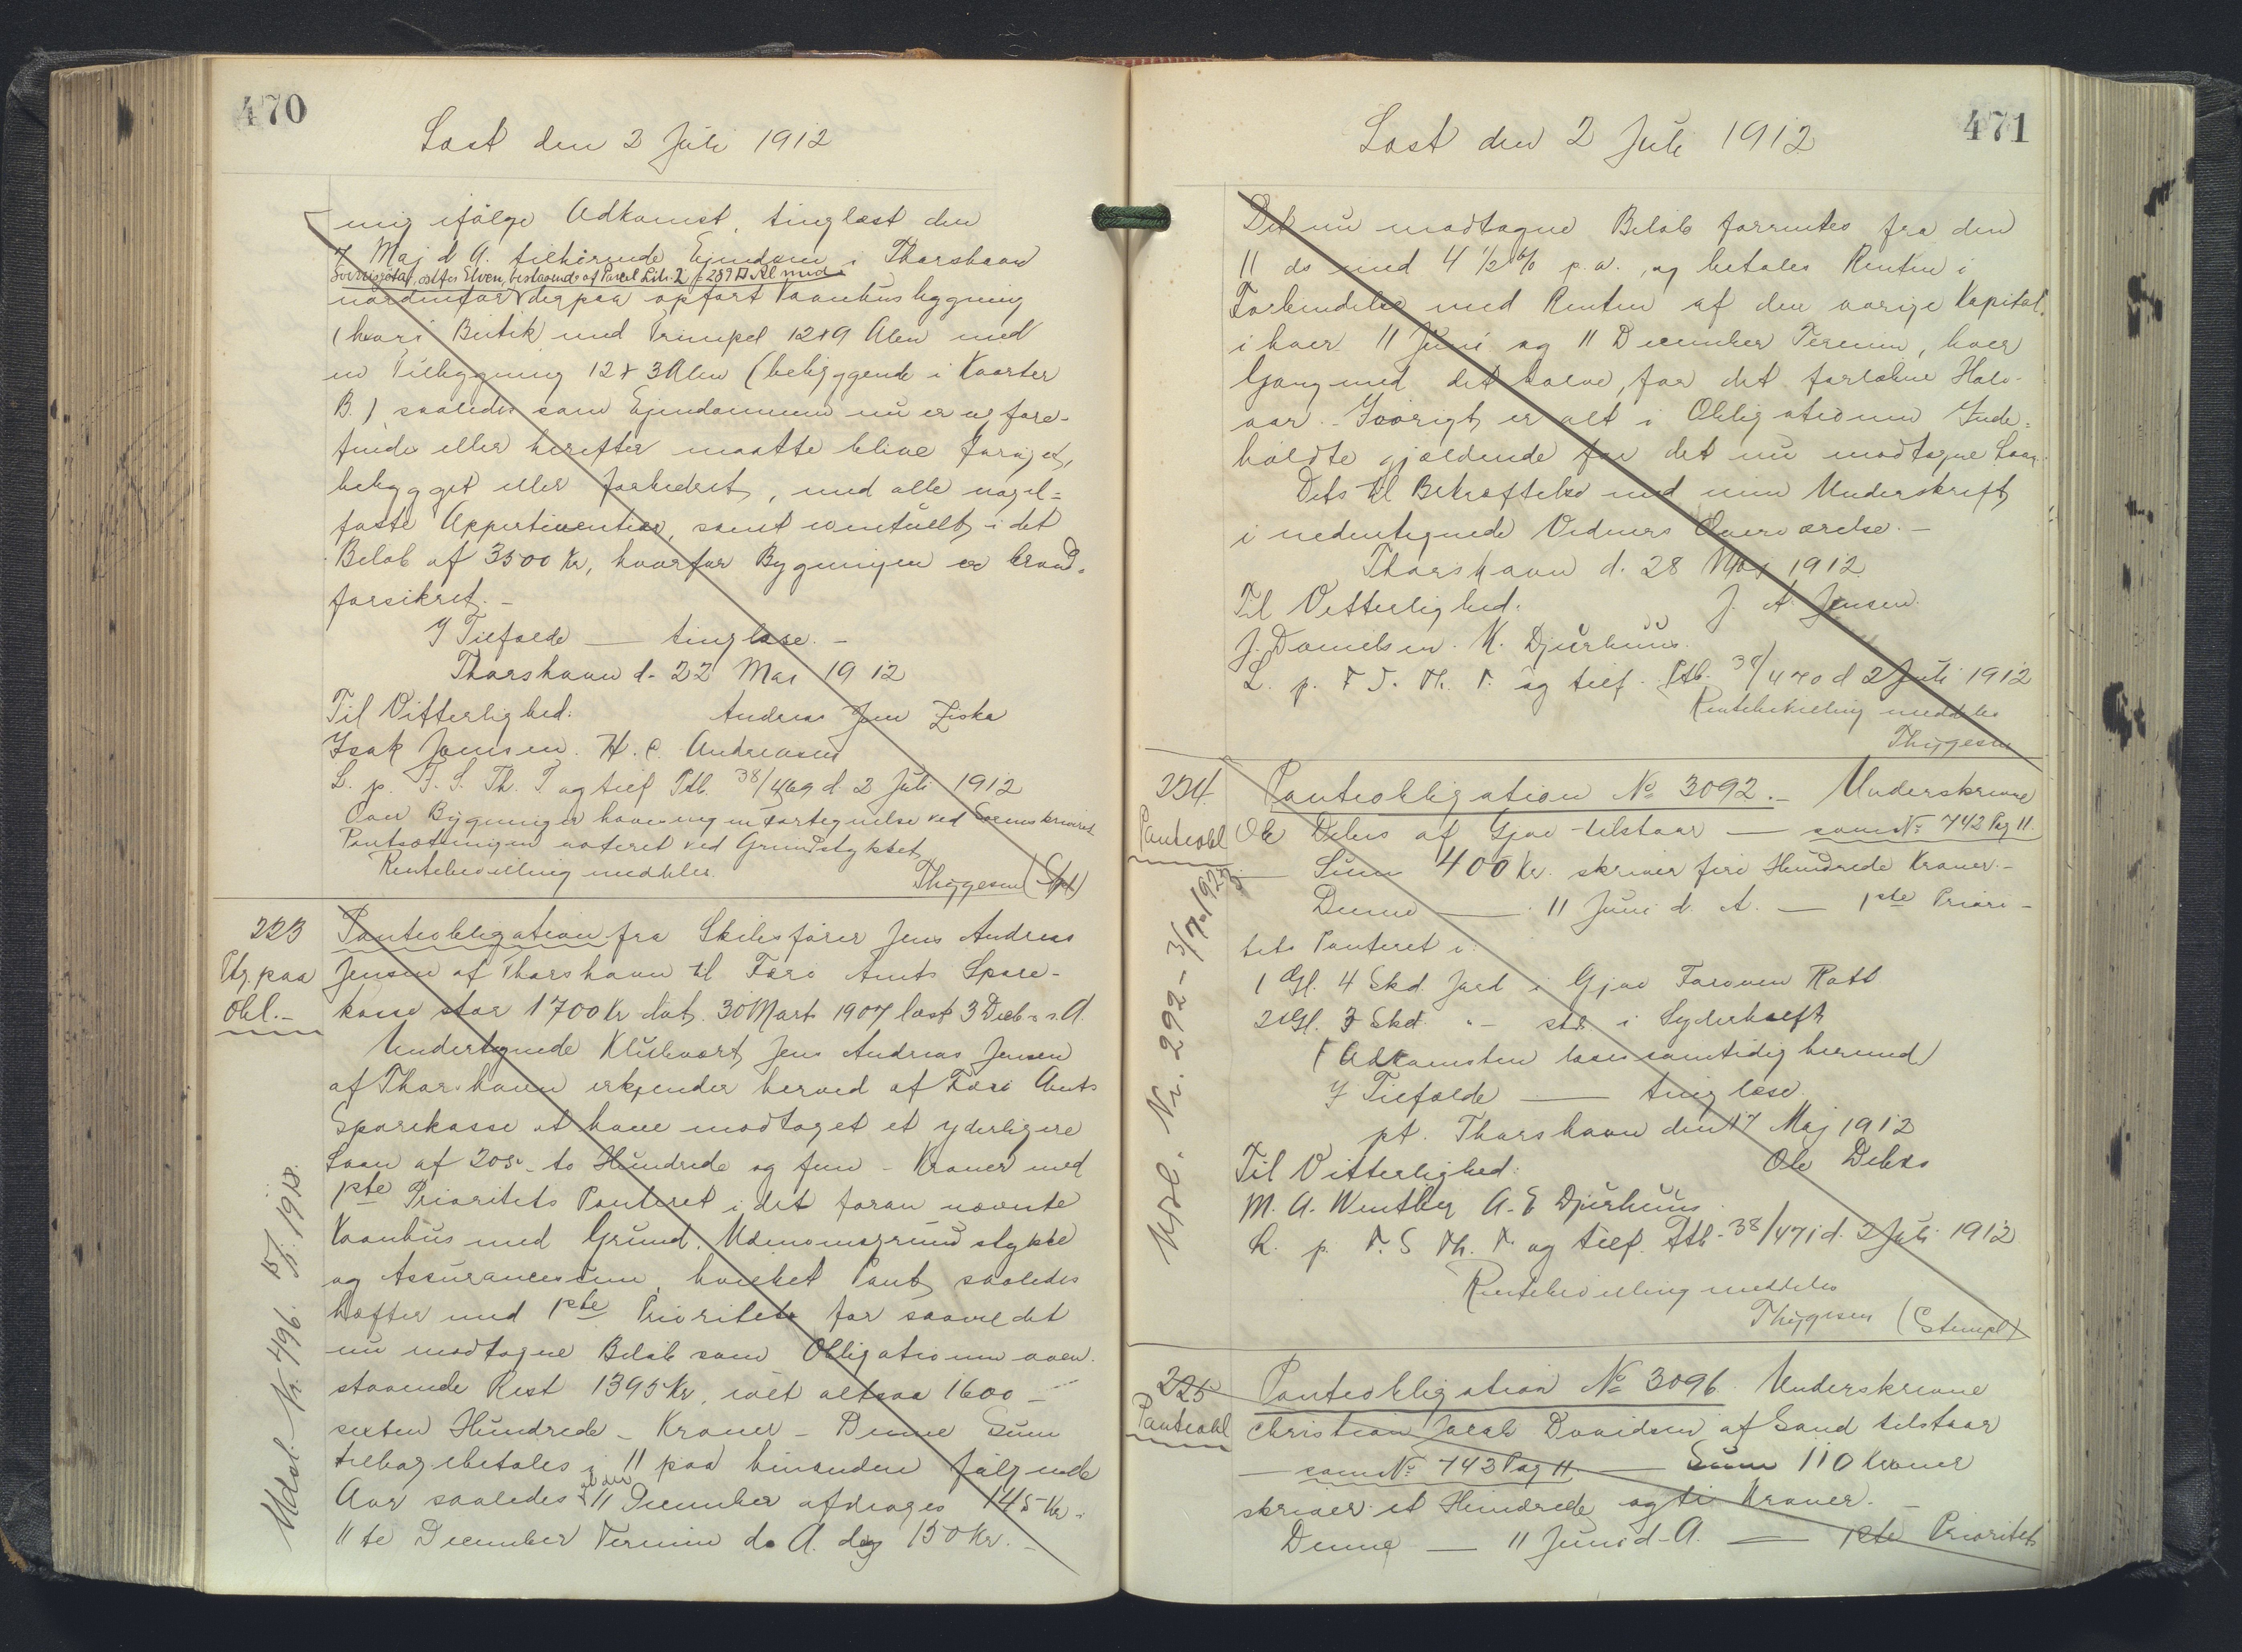 470
Læst den 2 Juli 1912
mig ifølge Adkomst, tinglæst den
7 Maj d A. tilhørende Ejendom i Thorshavn
østfor Elven, bestaaende af Parcel Litr. 2 289 □ Al med
nordenfor derpaa opført Vaanhusbygning
(hvori Butik med Frimpel 12x9 Alen med
en Tilbygning 12 x 3 Alen (beliggende i Kvarter
B.) saaledes som Ejendommen nu er og fore-
findes eller herefter maatte blive forøget,
bebygget eller forbedret, med alle nagel=
faste Appertinentier, samt eventuelt i det
Beløb af 3500 Kr, hvorfor Bygningen er brand=
forsikret. -
I Tilfælde — tinglæse. -
Thorshavn d. 22 Mai 1912
Til Vitterlighed: Andreas Jens Ziska
Isak Jensen. H. C. Andreasen
L. p. F. S. Th. T og tilf Ptb. 38/469 d 2 Juli 1912
Over Bygninger haves ingen Fortegnelse ved Sorenskriveriet
Pantsætningen noteret ved Grundstykket
Rentebevilling meddeles.
Thygesen (Spl)
223
Ptg. paa
Obl.-
Panteobligation fra Skibsfører Jens Andreas
Jensen af Thorshavn til Færø Amts Spare-
kasse stor 1700 Kr dat. 30 Marts 1907 læst 3 Decb. s. A.
Undertegnede Klubvært Jens Andreas Jensen
af Thorshavn erkjender herved af Færø Amts
Sparekasse at have modtaget et yderligere
Laan af 205 - to Hundrede og fem - Kroner med
1ste Prioritets Panteret i det foran nævnte
Vaanhus med Grund, Udenomsgrundstykke
og Assurancesum, hvilket Pant saaledes
hæfter med 1ste Prioritets for saavel det
nu modtagne Beløb som Obligationen oven-
staaende Rest 1395 Kr, ialt altsaa 1600 -
sexten Hundrede - Kroner - Denne Sum
tilbagebetales i 11 paa hinanden følgende
Aar saaledes at den 11 December afdrages 145 Kr. i
11te December Termin do A. dog 150 Kr. -
Udsl. Nr. 796. 15/11. 1918.
471
Læst den 2 Juli 1912
Det nu modtagne Beløb forrentes fra den
11 ds med 4 ½ % p. a., og betales Renten i
Forbindelse med Renten af den øvrige Kapital
i hver 11 Juni og 11 December Termin, hver
Gang med det halve, for det forløbne Halv-
aar. - Iøvrigt er alt i Obligationen Inde=
holdte gjældende for det nu modtagne Laan.
Dets til Bekræftelse med min Underskrift
i nedentegnede Vidners Overværelse. -
Thorshavn d. 28 Maj 1912
Til Vitterlighed: J. A. Jensen.
J. Danielsen. K. Djurhuus.
L. p. F. S. Th. T. og tilf. Ptb. 38/470 d 2 Juli 1912
Rentebevilling meddeles
Thygesen
224.
Panteobl
Pantobligation No 3092. - Underskrevne
Ole Debes af Gjov tilstaar — som No 742 Pag 11.
— Sum 400 Kr. skriver fire Hundrede Kroner. -
Denne — 11 Juni d. A. — 1ste Priori-
tets Panteret i:
1 Gl. 4 Skd Jord i Gjov Færøerne Rath
2 Gl. 3 Skd. "- std. i Syderhælft
(Adkomsten læses samtidig hermed)
I Tilfælde — tinglæse.
pt. Thorshavn den 17 Maj 1912
Til Vitterlighed: Ole Debes
M. A. Winther A. E Djurhuus.
L. p. F. S Th. T. og tilf. Ptb. 38/471 d. 2 Juli 1912
Rentebevilling meddeles
Thygesen (Stempl)
Udsl. Nr. 292 - 3/7. 1923.
225
Panteobl
Pantobligation No 3096. Underskrevne
Christian Jacob Davidsen af Sand tilstaar
— som No 742 Pag 11 — Sum 110 Kroner
skriver et Hundrede og ti Kroner. -
Denne — 11 Juni d. A. — 1ste Prioritets